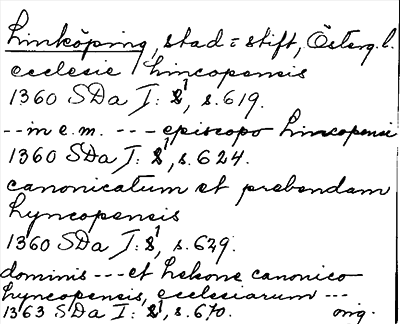 Linköping, stad = stift, Österg. l.
ecclesie Lincopensis
1360 SDa I: 1, s. 619.
-- in e.m. --- episcopo Lincopensi
1360 SDa I: 1, s. 624.
canonicatum et prebendam
Lyncopensis
1360 SDa I: 1, s. 629.
dominis --- et Hekone canonico
Lyncopensis, ecclesiarum ---
1363 SDa I: 1, s. 670. orig.